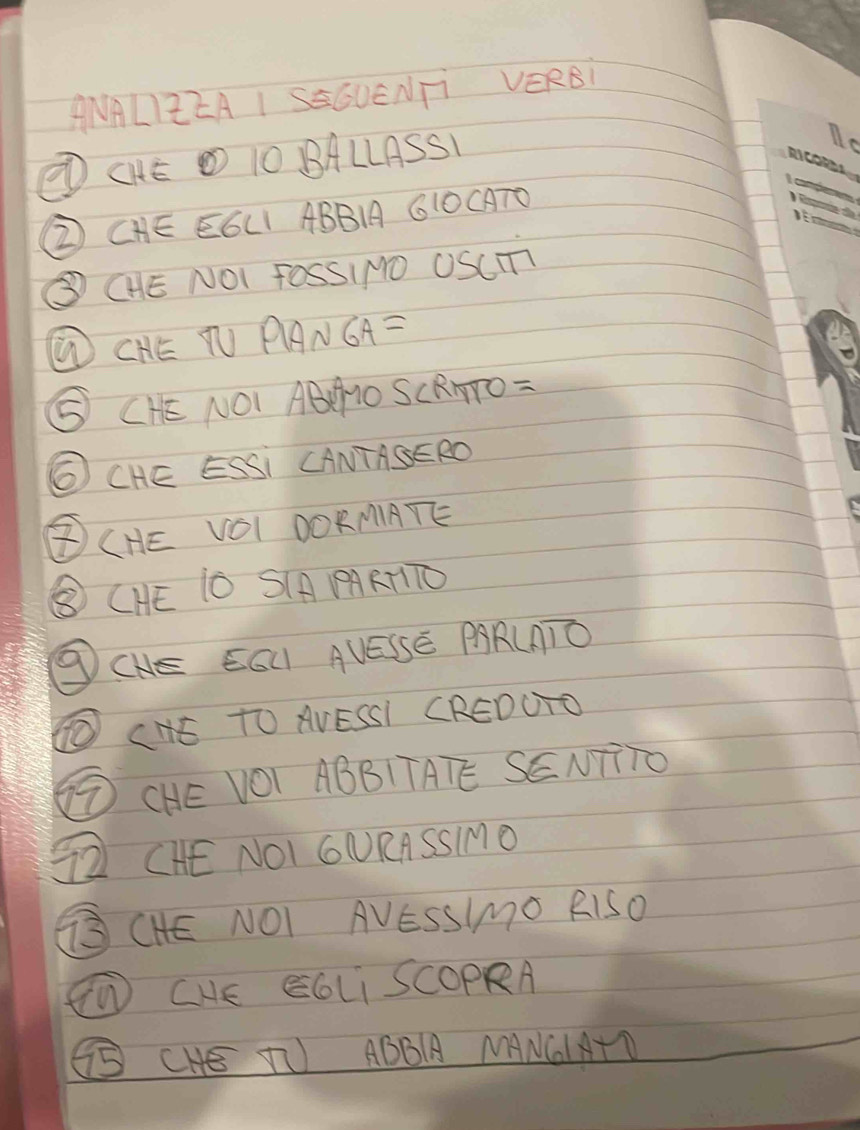 ANALIZZA I SEGUENTI VERBI
① CHE IO BALLASSI
② CHE EGLI ABBIA GIOCATO
③ CHE NOI FOSSIMO USCITI
④ CHE TU PIANGA =
⑤ CHE NOI ABBIAMO SCRITTO =
⑥ CHE ESSI CANTASSERO
⑦ CHE VOI DORMIATE
⑧ CHE IO SIA PARTITO
⑨ CHE EGLI AVESSE PARLATO
⑩ CHE TU AVESSI CREDUTO
⑪ CHE VOI ABBITATE SENTITO
⑫ CHE NOI GIURASSIMO
⑬ CHE NOI AVESSIMO RISO
⑭ CHE EGLI SCOPRA
⑮ CHE TU ABBIA MANGIATO
Il c
RICORDA
Il complemento